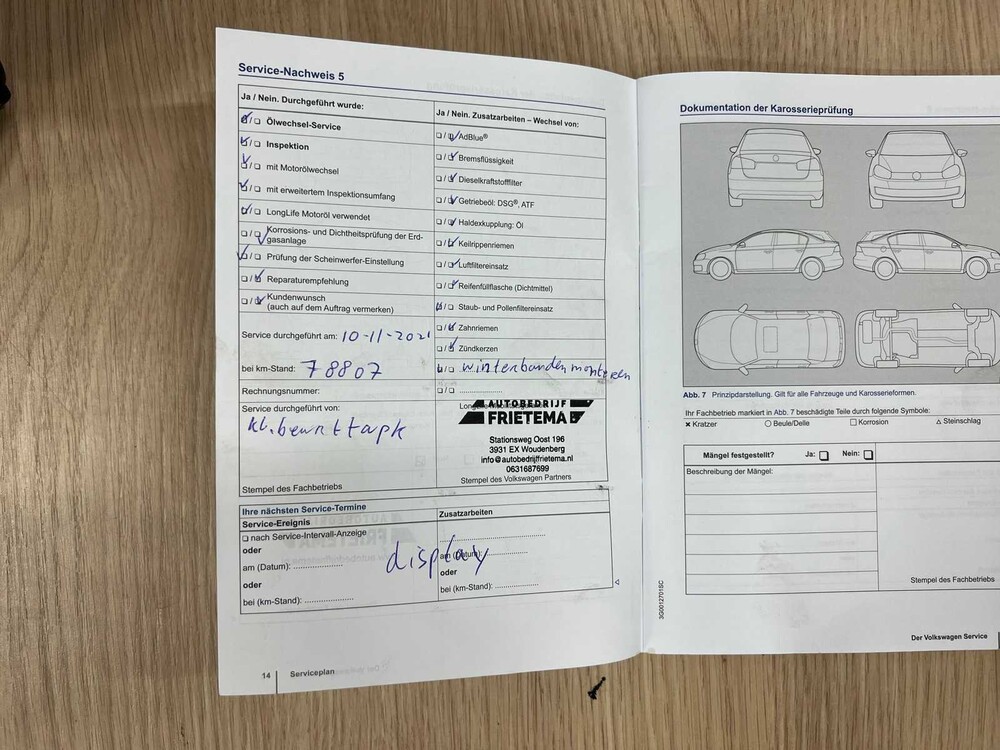 Service-Nachweis 5
Ja / Nein. Durchgeführt wurde:
Ölwechsel-Service
Inspektion
mit Motorölwechsel
mit erweitertem Inspektionsumfang
LongLife Motoröl verwendet
Korrosions- und Dichtheitsprüfung der Erd-
gasanlage
Prüfung der Scheinwerfer-Einstellung
Reparaturempfehlung
Kundenwunsch
(auch auf dem Auftrag vermerken)
Service durchgeführt am: 10-11-2021
bei km-Stand: 78807
Rechnungsnummer:
Service durchgeführt von:
Stempel des Fachbetriebs
Ja / Nein. Zusatzarbeiten – Wechsel von:
AdBlue®
Bremsflüssigkeit
Dieselkraftstofffilter
Getriebeöl: DSG®, ATF
Haldexkupplung: Öl
Keilrippenriemen
Luftfiltereinsatz
Reifenfüllflasche (Dichtmittel)
Staub- und Pollenfiltereinsatz
Zahnriemen
Zündkerzen
winterbanden monteren
AUTOBEDRIJF
FRIETEMA
Stationsweg Oost 196
3931 EX Woudenberg
info@autobedrijffrietema.nl
0631687699
Stempel des Volkswagen Partners
Ihre nächsten Service-Termine
Service-Ereignis
nach Service-Intervall-Anzeige
oder
am (Datum): ....................
oder
bei (km-Stand): ....................
Zusatzarbeiten
display
am (Datum): ....................
oder
bei (km-Stand): ....................
14 Serviceplan
Dokumentation der Karosserieprüfung
Abb. 7 Prinzipdarstellung. Gilt für alle Fahrzeuge und Karosserieformen.
Ihr Fachbetrieb markiert in Abb. 7 beschädigte Teile durch folgende Symbole:
× Kratzer ○ Beule/Delle □ Korrosion △ Steinschlag
Mängel festgestellt? Ja: Nein:
Beschreibung der Mängel:
Stempel des Fachbetriebs
3G0012701SC
Der Volkswagen Service